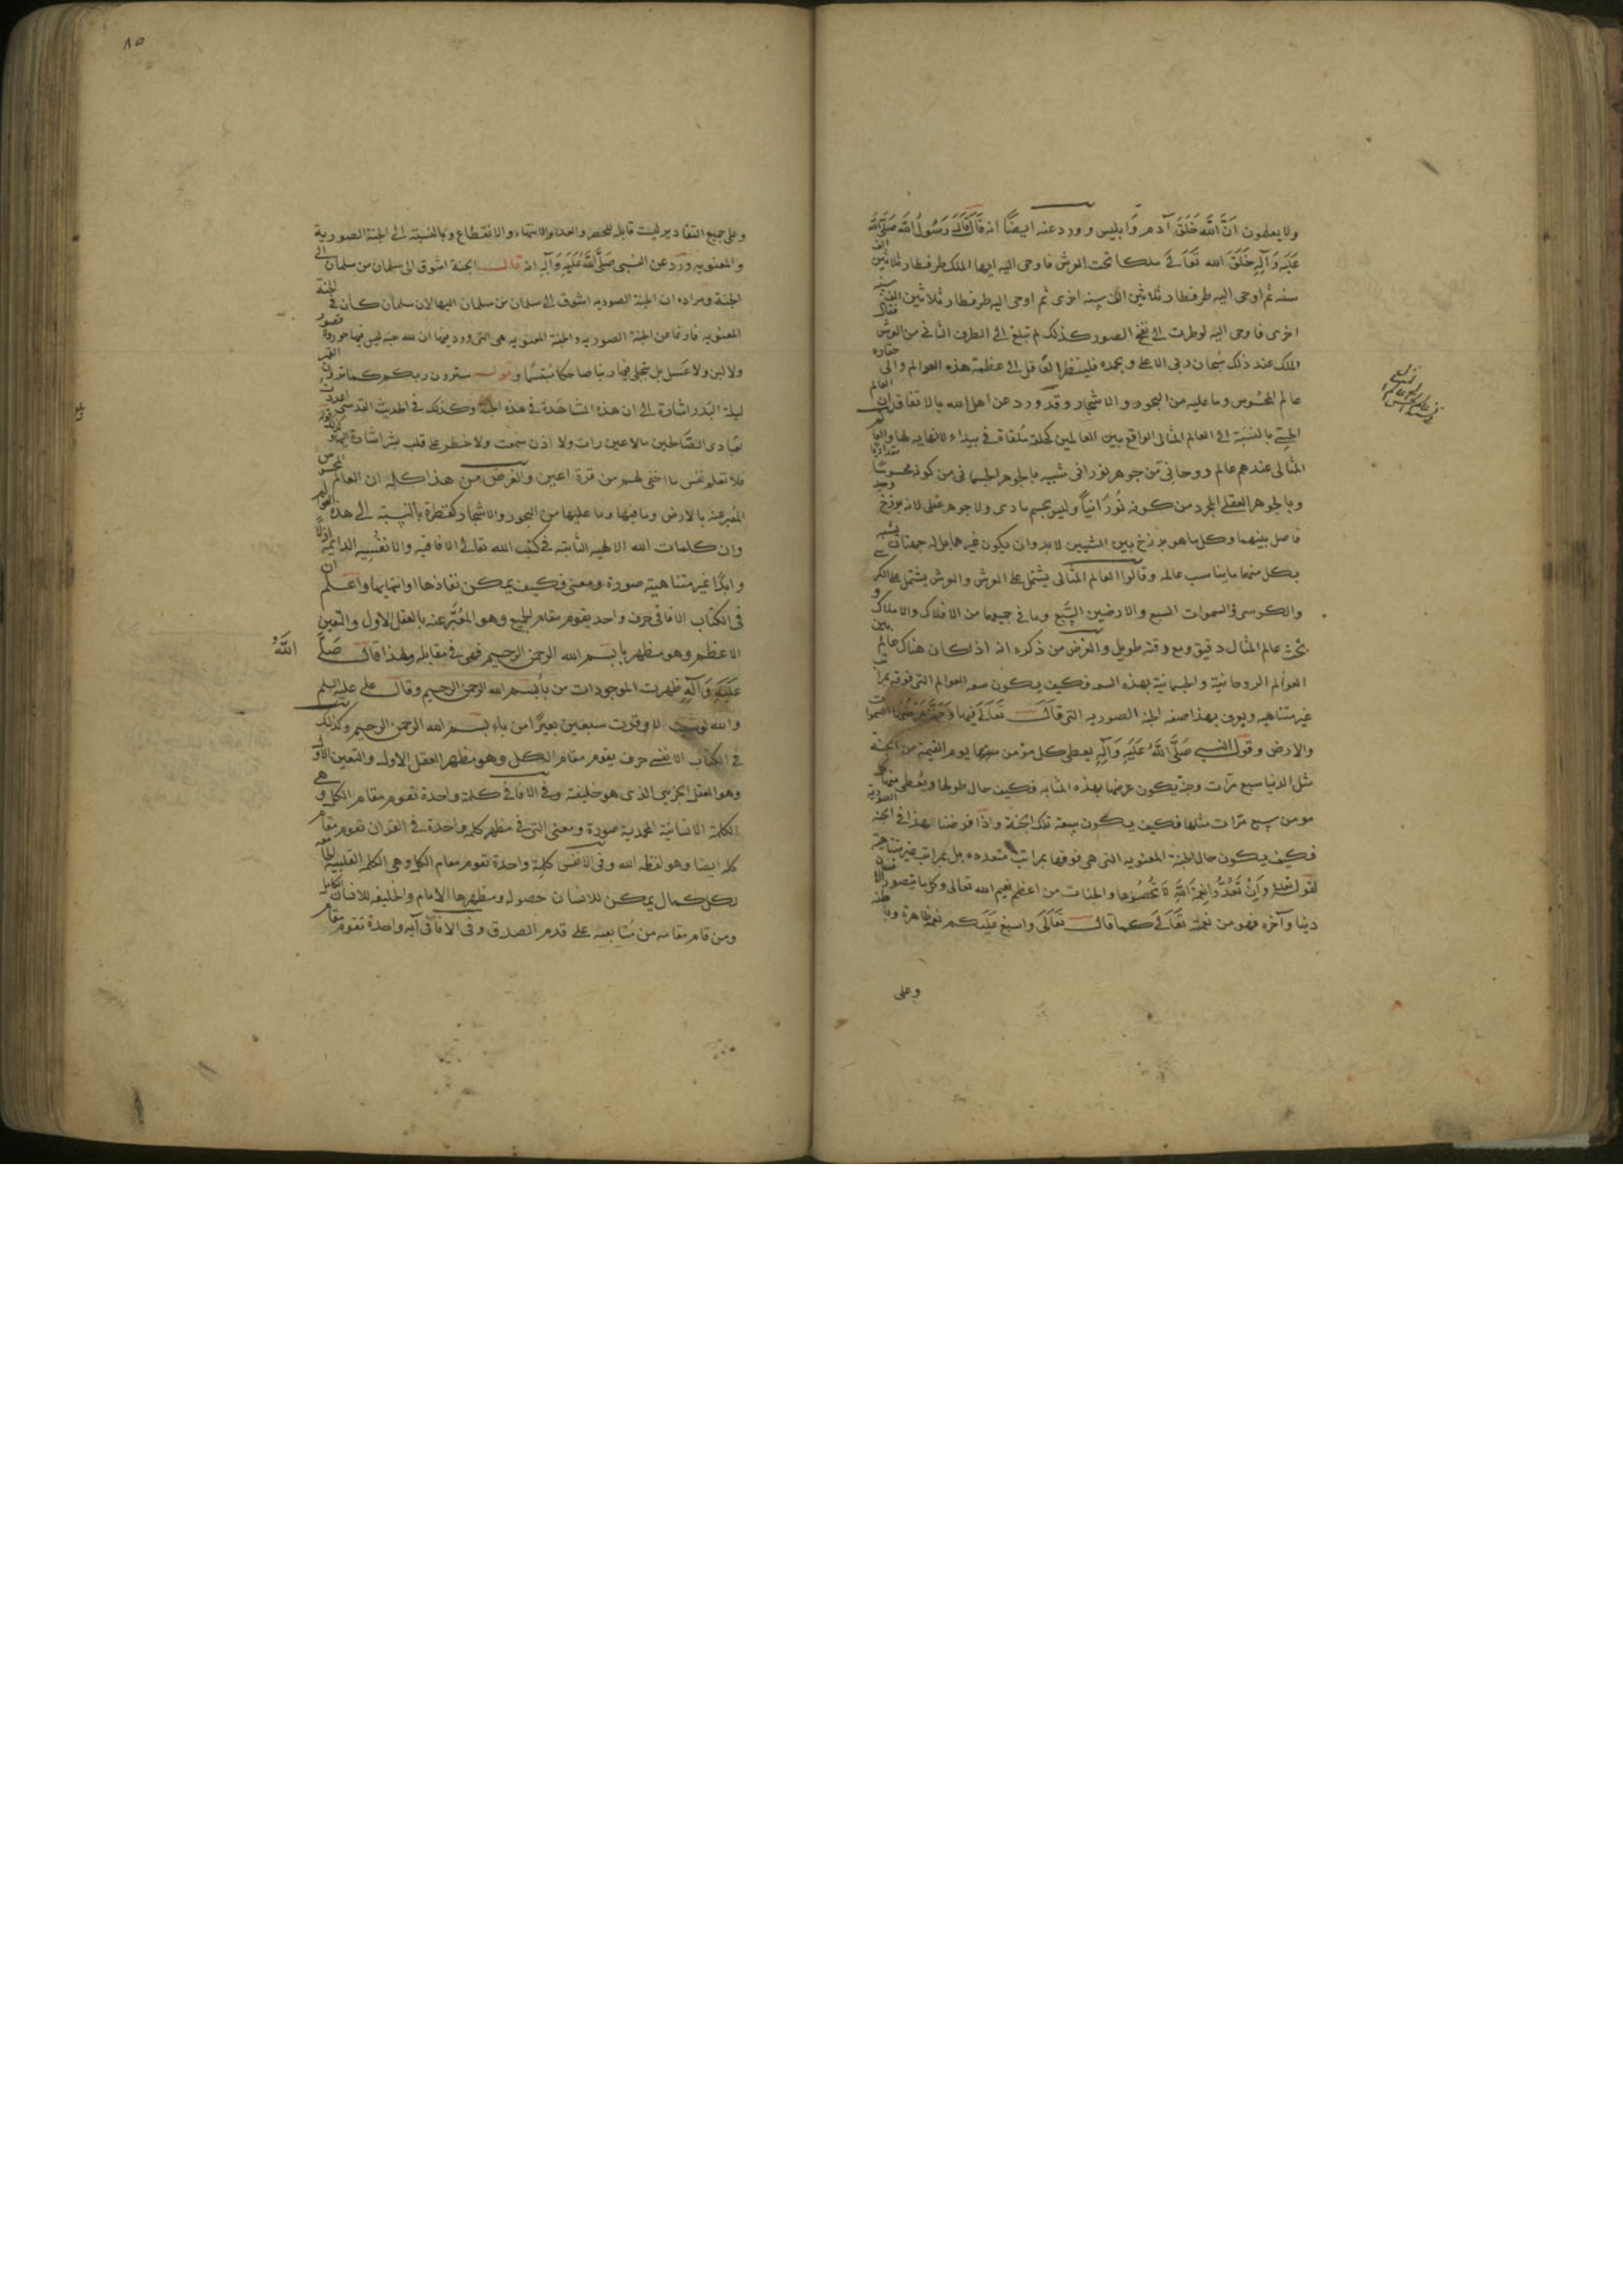 ولا يعلمون ان الله خلق آدم وابليس وورد عنه ايضا انه قال قال رسول الله صلى الله
عليه وآله خلق الله تعالى ملكا تحت العرش فاوحى اليه ايها الملك طر فطار ثلاثين الف
سنة ثم اوحى اليه طر فطار ثلاثين الف سنة اخرى ثم اوحى اليه طر فطار ثلاثين الف سنة
اخرى فاوحى اليه لو طرت الى نفخ الصور كذلك لم تبلغ الى الطرف الثاني من العرش فقال
الملك عند ذلك سبحان ربي الاعلى وبحمده فلينظر العاقل الى عظمة هذه العوالم والى حقارة
عالم المحسوس وما عليه من البحور والاشجار وقد ورد عن اهل الله بالاتفاق ان العالم
الحسي بالنسبة الى العالم المثالى الواقع بين العالمين كحلقة ملقاة في بيداء لا نهاية لها والعالم
المثالى عندهم عالم روحاني من جوهر نوراني شبيه بالجوهر الجسماني من كونه محسوسا مقداريا
وبالجوهر العقلي المجرد من كونه نورانيا وليس بجسم مادى ولا جوهر عقلى لانه برزخ وحد
فاصل بينهما وكل ما هو برزخ بين الشيئين لا بد وان يكون غيرهما بل له جهتان يشبه
بكل منهما ما يناسب عالمه وقالوا العالم المثالى يشتمل على العرش والعرش يشتمل على الكر
والكرسى والسموات السبع والارضين السبع وما في جميعها من الافلاك والاملاك و
بحث عالم المثال دقيق ومع دقته طويل والغرض من ذكره انه اذا كان هناك عالم بين
العوالم الروحانية والجسمانية بهذه السعة فكيف يكون سعة العوالم التى فوقه بمراتب
غير متناهية ويعرف بهذا صفة الجنة الصورية التى قال تعالى فيها وجنة عرضها السموات
والارض وقول النبي صلى الله عليه وآله يعطى كل مؤمن يوم القيمة من الجنة
مثل الدنيا سبع مرات وجنة يكون عرضها بهذه المثابة فكيف حال طولها ويعطى منها كل
مومن سبع مرات مثلها فكيف يكون سعة تلك الجنة واذا فرضنا هذا في الجنة الصورية
فكيف يكون حال الجنة المعنوية التى هي فوقها بمراتب متعددة بل بمراتب غير متناهية
لقوله تعالى وان تعدوا نعمة الله لا تحصوها والجنات من اعظم نعيم الله تعالى وكل ما يتصور الانسان
دنيا وآخرة فهو من نعمه تعالى كما قال تعالى واسبغ عليكم نعمه ظاهرة وباطنة
وعلى
٨٥
وعلى جميع التقادير ليست قابلة للحصر والعد والانتهاء والانقطاع وبالنسبة الى الجنة الصورية
والمعنوية ورد عن النبى صلى الله عليه وآله انه قال الجنة اشوق الى سلمان من سلمان الى
الجنة ومراده ان الجنة الصورية اشوق الى سلمان من سلمان اليها لان سلمان كان في الجنة
المعنوية فارغا من الجنة الصورية والجنة المعنوية هى التى ورد فيها ان لله جنة ليس فيها حور ولا قصور
ولا لبن ولا عسل بل يتجلى فيها ربنا ضاحكا متبسما وقوله سترون ربكم كما ترون القمر
ليلة البدر اشارة الى ان هذه المشاهدة في هذه الجنة وكذلك في الحديث القدسي اعددت
لعبادى الصالحين ما لا عين رأت ولا اذن سمعت ولا خطر على قلب بشر اشارة اليها وكذلك قوله
فلا تعلم نفس ما اخفى لهم من قرة اعين والغرض من هذا كله ان العالم المحسوس
المعبر عنه بالارض وما فيها وما عليها من البحور والاشجار كقطرة بالنسبة الى هذه العوالم
وان كلمات الله الالهية الثابتة في كتب الله تعالى الافاقية والانفسية الدائمة ازلا
وابدا غير متناهية صورة ومعنى فكيف يمكن نفادها وانتهايها واعلم ان
في الكتاب الافاقى حرف واحد يقوم مقام الجميع وهو المعبر عنه بالعقل الاول والتعين
الاعظم وهو مظهر با بسم الله الرحمن الرحيم فهى في مقابله ولهذا قال صلى الله
عليه وآله ظهرت الموجودات من باء بسم الله الرحمن الرحيم وقال على عليه السلم
والله لو شئت لاوقرت سبعين بعيرا من باء بسم الله الرحمن الرحيم وكذلك
في الكتاب الانفسى حرف يقوم مقام الكل وهو مظهر العقل الاول والتعين الاول
وهو العقل الجزيى الذى هو خليفته وفي الافاقى كلمة واحدة تقوم مقام الكل وهى
الكلمة الانسانية المحمدية صورة ومعنى التى في مظهر كلمة واحدة في القرآن تقوم مقام
كله ايضا وهو لفظة الله وفي الانفس كلمة واحدة تقوم مقام الكل وهى الكلمة القلبية الجامعة
لكل كمال يمكن للانسان حصوله ومظهرها الامام والخليفة للانسان الكامل
ومن قام مقامه من متابعيه على قدم الصدق وفي الافاقى آية واحدة تقوم مقام